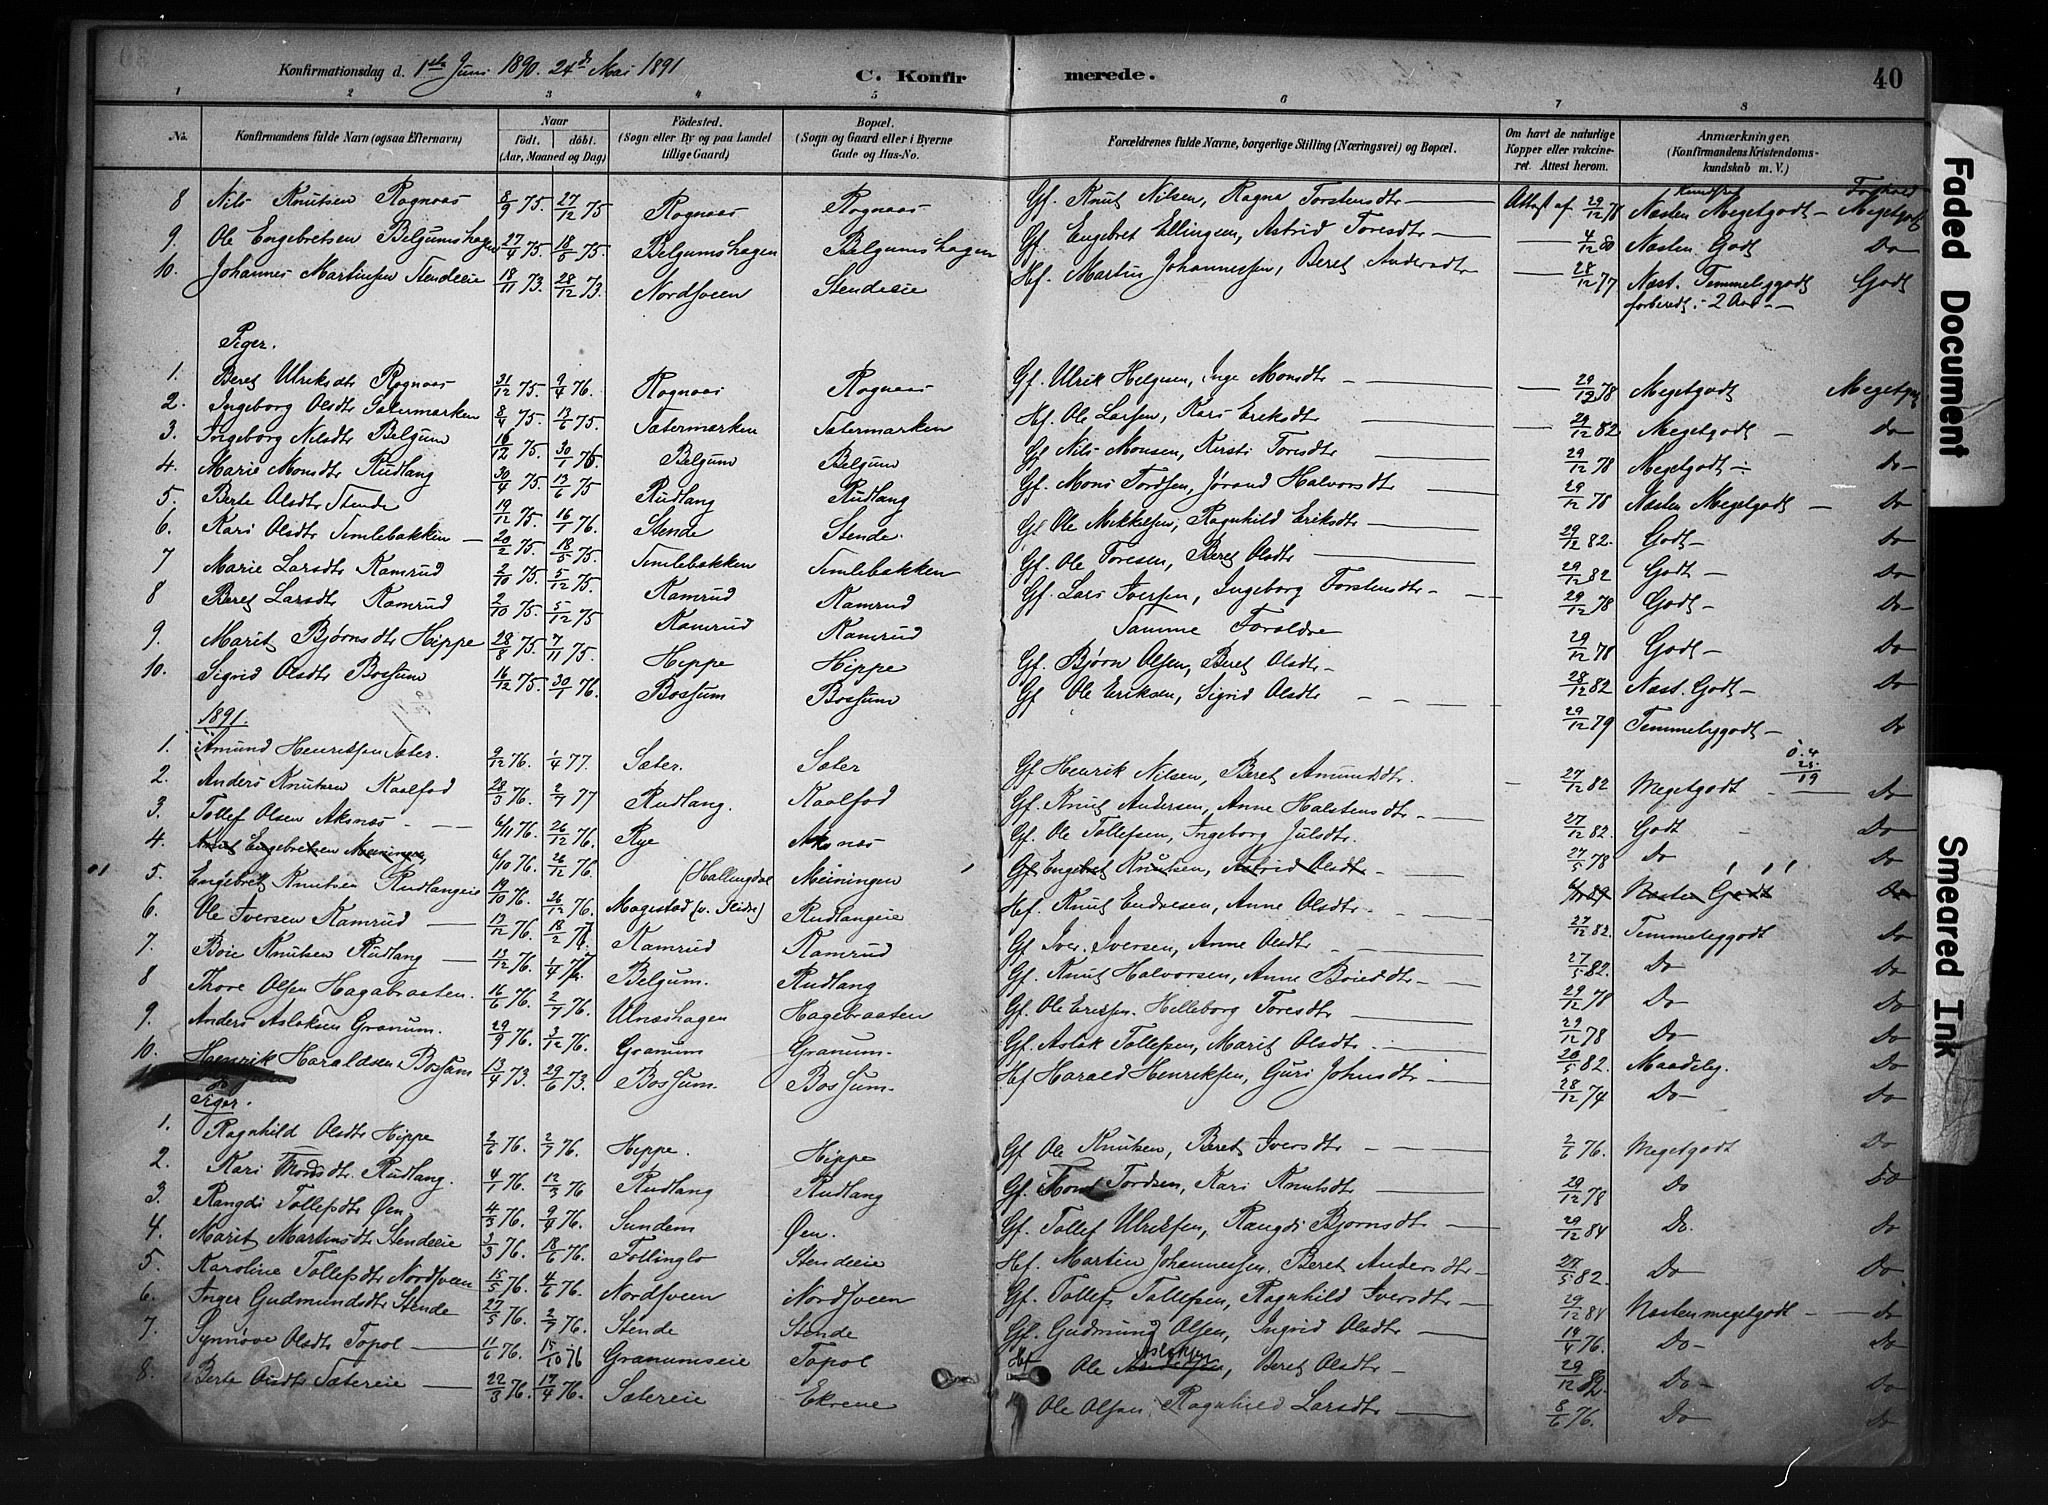 Konfirmationsdag d. 1ste Juni 1890. 24de Mai 1891
C. Konfirmerede.
40
1 2 3 4 5 6 7 8
No. Konfirmandens fulde Navn (ogsaa Efternavn) Naar født. døbt. (Aar, Maaned og Dag) Födested. (Sogn eller By og paa Landet tillige Gaard) Bopæl. (Sogn og Gaard eller i Byerne Gade og Hus-No. Forældrenes fulde Navne, borgerlige Stilling (Næringsvei) og Bopæl. Om havt de naturlige Kopper eller vakcineret. Attest herom. Anmærkninger, (Konfirmandens Kristendomskundskab m. V.)
Kundskab Forhold
8 Nils Knutsen Rognaas 8/9 75. 27/12 75 Rognaas Rognaas Gf. Knut Nilsen, Ragna Torstensdtr Attest af 29/12 78 Næsten Megetgodt Megetgodt
9. Ole Engebretsen Belgumshagen 27/4 75. 18/5 75. Belgumshagen Belgumshagen Gf Engebret Ellingsen, Astrid Toresdtr 4/12 80 Næsten Godt Do
10. Johannes Martinsen Stendeeie 18/11 73. 28/12 73. Nordsveen Stendeeie Hf. Martin Johannessen, Beret Andersdtr 28/12 77 Næst. Temmeliggodt Godt
forberedt i 2 Aar
Piger.
1. Beret Ulriksdtr Rognaas 31/12 75. 9/4 76. Rognaas Rognaas Gf. Ulrik Helgesen, Inge Monsdtr 29/12 78 Megetgodt Megetgodt
2. Ingeborg Olsdtr Sætermarken 8/4 75. 13/6 75. Sætermarken Sætermarken Hf. Ole Larsen, Kari Eriksdtr 29/12 82 Megetgodt Do
3. Ingeborg Nilsdtr Belgum 16/12 75. 30/1 76. Belgum Belgum Gf Nils Monsen, Kirsti Toresdtr 29/12 78 Megetgodt Do
4. Marie Monsdtr Rudlang 30/4 75. 13/6 75 Rudlang Rudlang Gf. Mons Tordsen, Jørand Halvorsdtr 29/12 78 Næsten Megetgodt Do
5. Berte Olsdtr Stende 19/12 75. 16/1 76. Stende Stende Gf Ole Mikkelsen, Ragnhild Eriksdtr 29/12 82. Godt Do
6. Kari Olsdtr Temlebakken 20/2 75. 18/5 75. Temlebakken Temlebakken Gf. Ole Toresen, Beret Olsdtr 29/12 82 Godt Do
7 Marie Larsdtr Kamrud 2/10 75. 5/12 75. Kamrud Kamrud Gf. Lars Iversen, Ingeborg Torstensdtr 29/12 78 Godt Do
8 Beret Larsdtr Kamrud 2/10 75. 5/12 75 Kamrud Kamrud Samme Forældre 29/12 78 Godt Do
9. Marit Bjørnsdtr Hippe 28/8 75. 7/11 75. Hippe Hippe Gf. Bjørn Olsen, Beret Olsdtr 28/12 82 Næst. Godt Do
10. Sigrid Olsdtr Bossum 16/12 75. 30/1 76. Bossum Bossum Gf Ole Eriksen, Sigrid Olsdtr 29/12 79 Temmeliggodt Do
1891.
1. Amund Henriksen Sæter. 9/12 76. 1/4 77. Sæter. Sæter Gf Henrik Nilsen, Beret Amundsdtr. 27/12 82 Megetgodt Do
2. Anders Knutsen Kaalfod 28/3 76. 2/7 77 Rudlang. Kaalfod Gf. Knut Andersen, Anne Halstensdtr 27/12 82. Godt Do
3. Tollef Olsen Aksnæs 6/11 76. 26/12 76. Rye Aksnæs Gf. Ole Tollefsen, Ingeborg Julsdtr. 27/5 78 Do Do
4. Knut Engebretsen Meiningen 6/10 76. 26/12 76. (Hallingdal Meiningen Gf Engebret Knutsen, Astrid Olsdtr Næsten Godt Do
5. Engebret Knutsen Rudlangeie 19/10 76. 26/12 76. Magestad (v. Slidre) Rudlangeie Hf. Knut Endresen, Anne Olsdtr 27/12 82. Temmeliggodt Do
6. Ole Iversen Kamrud 13/12 76. 18/2 77. Kamrud Kamrud Gf Iver Iversen, Anne Olsdtr 27/5 82. Do Do
7. Boie Knutsen Rudlang 13/12 76. 1/4 77. Belgum. Rudlang Gf. Knut Halvorsen, Anne Boiesdtr 29/12 78 Do Do
8 Thore Olsen Hagabraaten. 16/6 76. 2/7 76. Ulnæshagen Hagebraaten Gf. Ole Eriksen. Helleborg Toresdtr 29/12 78 Do Do
9. Anders Aslaksen Granum. 29/9 76. 3/12 76. Granum Granum. Gf. Aslak Tollefsen, Marit Olsdtr 20/5 82. Maadelig. Do
10. Henrik Haraldsen Bossum 13/4 73. 29/6 73. Bossum. Bossum. Hf Harald Henriksen, Guri Johnsdtr 28/12 74 Do Do
Piger.
1. Ragnhild Olsdtr Hippe 2/6 76. 2/7 76. Hippe. Hippe Gf Ole Knutsen, Beret Iversdtr 2/6 76. Megetgodt Do
2. Kari Tronsdtr. Rudlang. 4/1 76. 12/3 76 Rudlang Rudlang Gf. Tron Tordsen, Kari Knutsdtr 29/12 78 Do Do
3. Rangdi Tollefsdtr Øen 4/3 76. 9/4 76. Sundem Øen. Gf. Tollef Ulriksen, Rangdi Bjørnsdtr 29/12 84 Do. Do
4. Marit Martinsdtr Stendeeie 3/3 76. 18/6 76. Follinglo Stendeeie Hf. Martin Johannessen, Beret Andersdtr 27/5 82. Do Do
5. Karoline Tollefsdtr Nordsveen 15/5 76. 4/6 76. Nordsveen Nordsveen Gf. Tollef Tollefsen, Ragnhild Iversdtr 29/12 84 Næsten megetgodt Do
6. Inger Gudmundsdtr Stende 27/5 76. 2/7 76. Stende Stende Gf. Gudmund Olsen, Ingrid Olsdtr 19/4 76. Do Do
7. Synnøve Olsdtr Topol 11/6 76. 15/10 76 Granumseie Topol Hf Ole Aslaksen, Beret Olsdtr 29/12 82. Do Do
8. Berte Olsdtr Sætereie 22/3 76. 17/4 76. Sætereie Ekrene Ole Olsen Ragnhild Larsdtr 8/6 76. Do Do
Faded Document
Smeared Ink